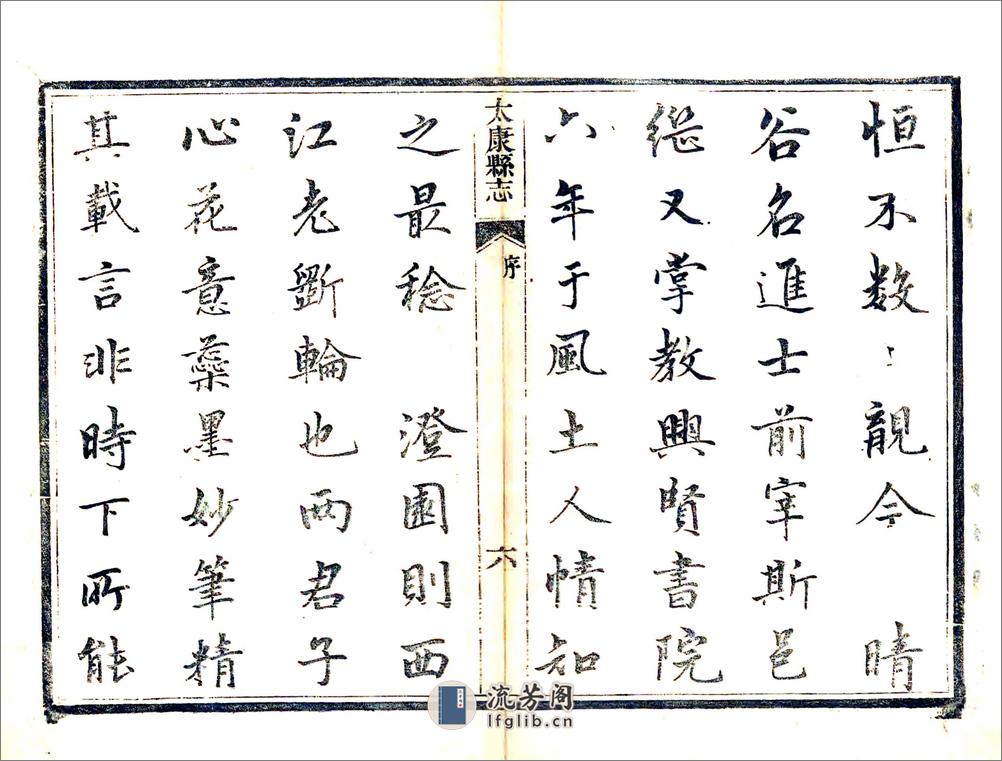 恒不数〻覯今　晴
谷名進士前宰斯邑
継又掌教興賢書院
六年于風土人情知
太康縣志
序
六
之最稔　澄園則西
江老斵輪也兩君子
心花意蘂墨妙筆精
其載言非時下所能
流芳阁
lfglib.cn